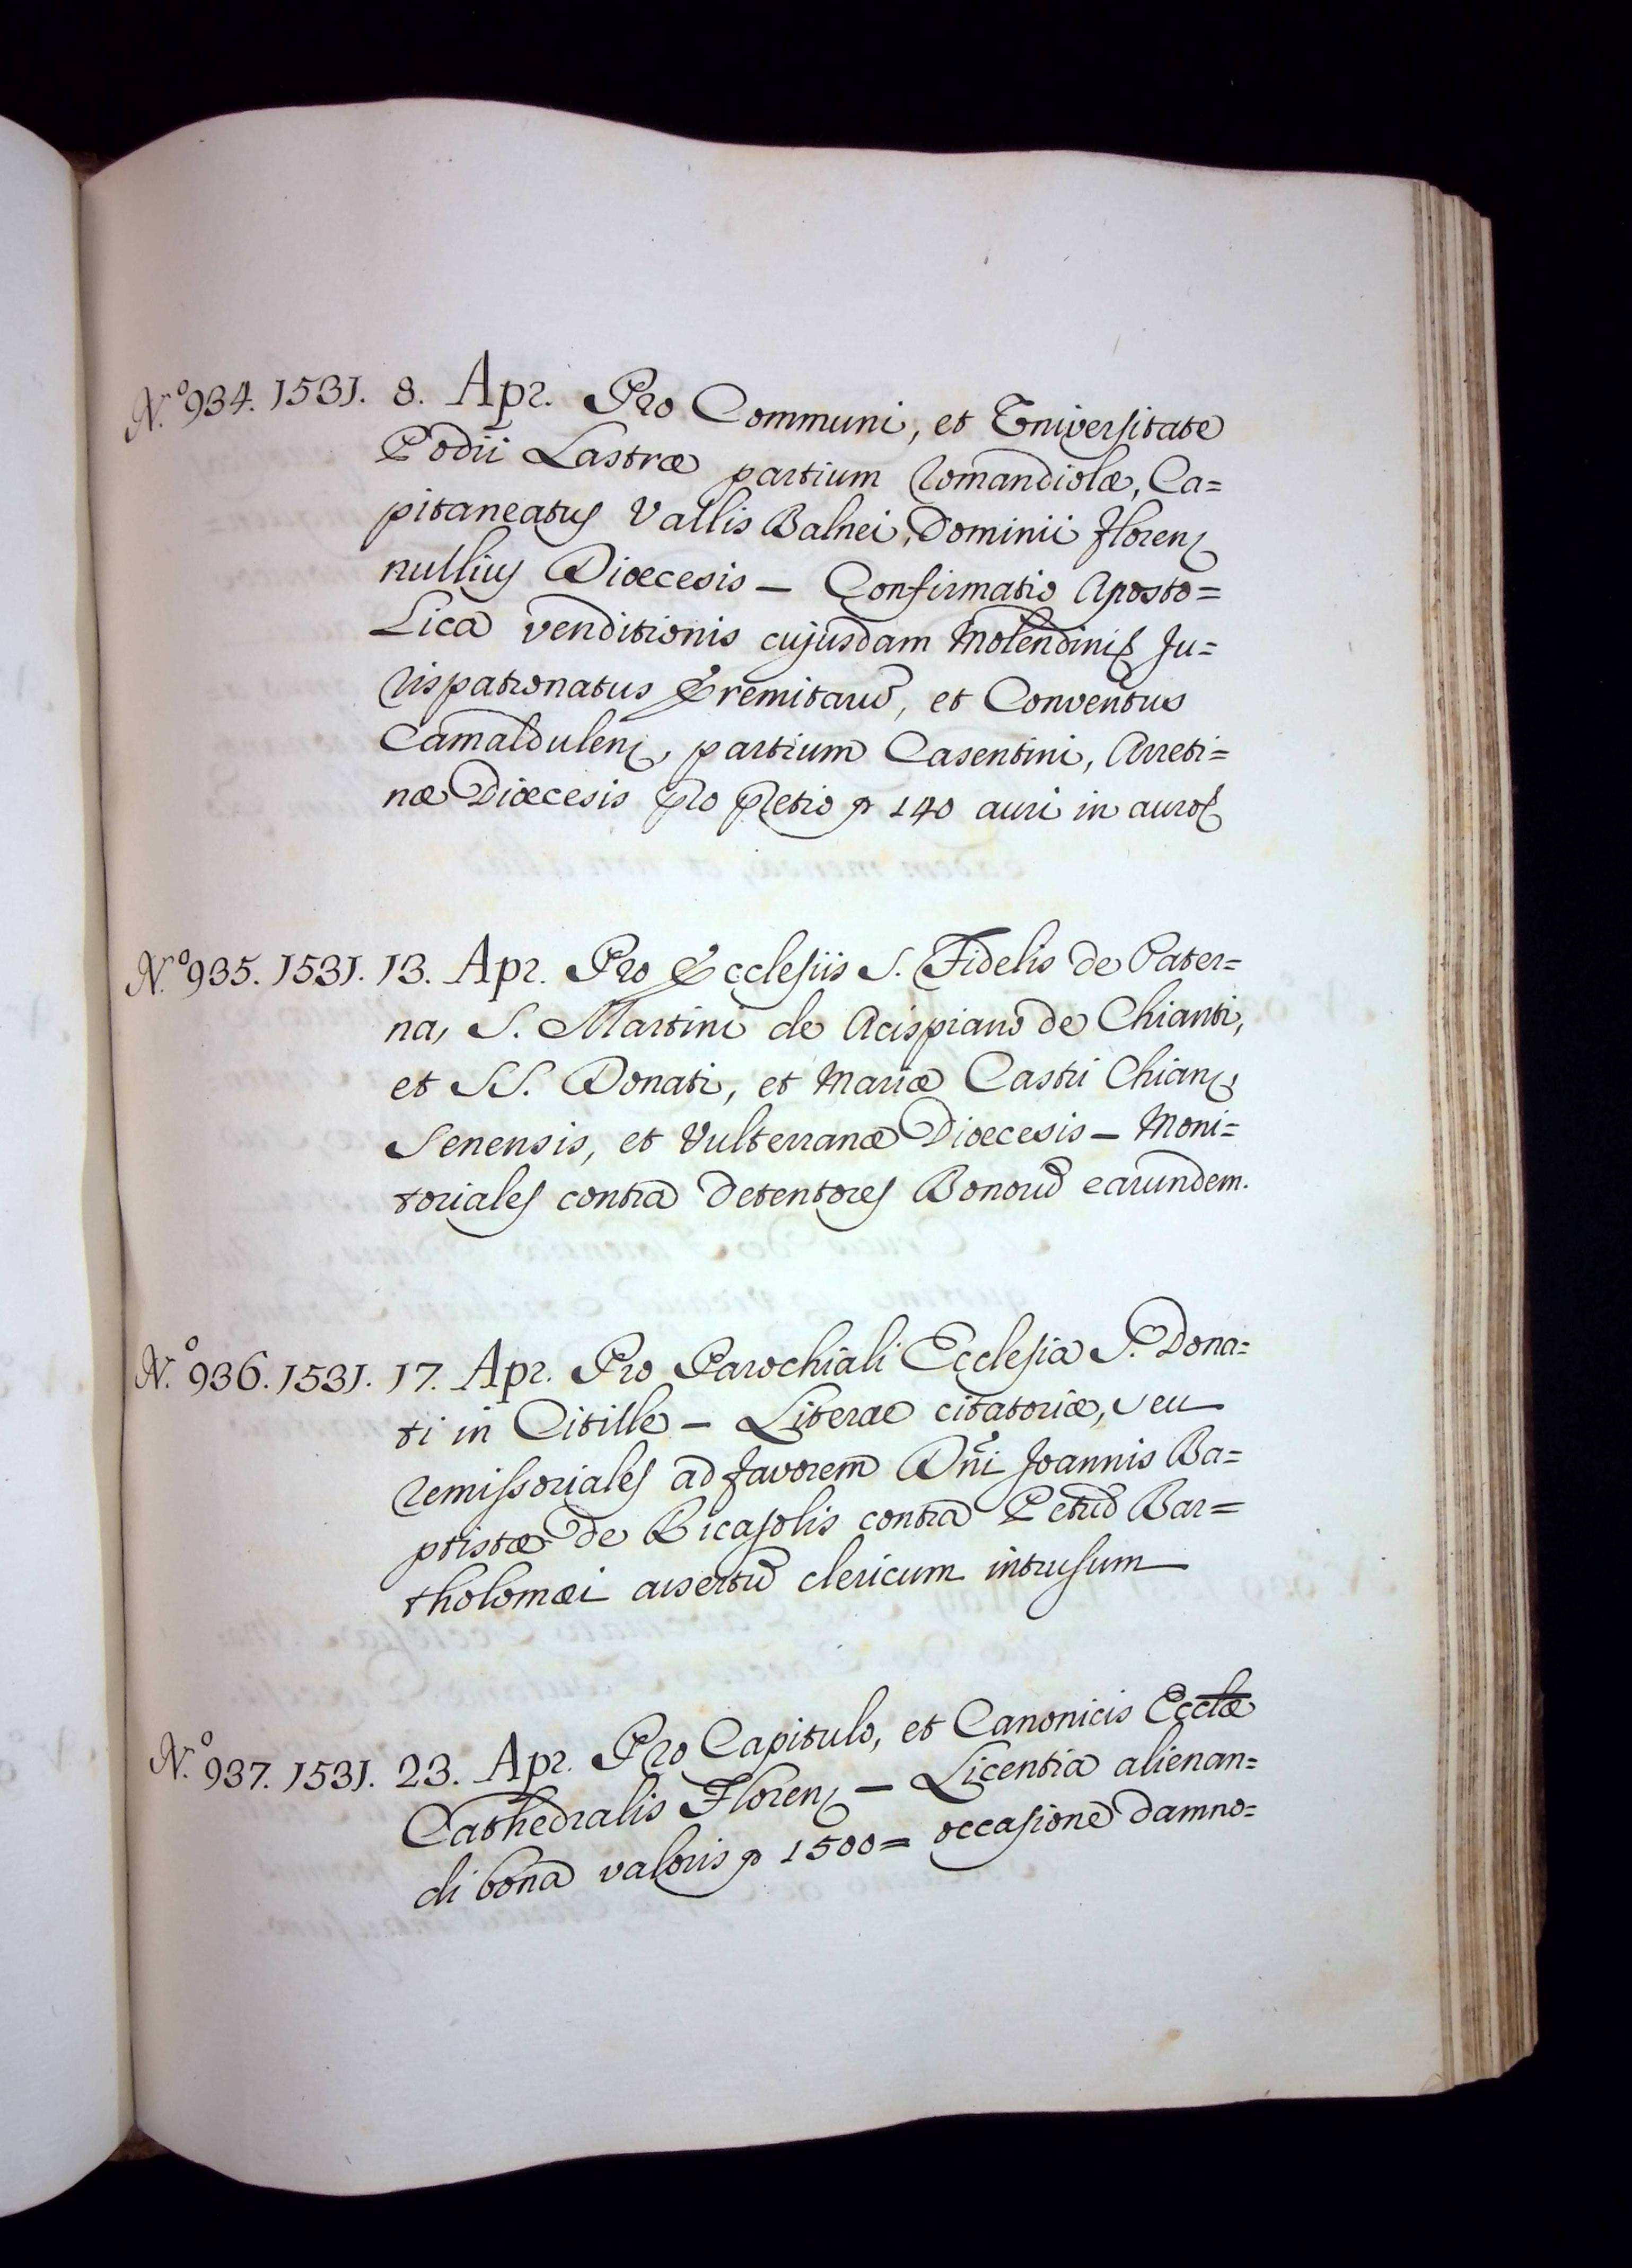 N.º 934. 1531. 8. Apr. Pro Communi, et Universitate
Podii Lastræ partium Romandiolæ, Ca=
pitaneatus Vallis Balnei, Dominii Floren
nullius Diœcesis — Confirmatio Aposto=
Lica venditionis cujusdam Molendini Ju=
rispatronatus Eremitarũ, et Conventus
Camaldulen, partium Casentini, Arreti=
næ Diœcesis pro pretio 140 auri in auro
N.º 935. 1531. 13. Apr. Pro Ecclesiis S. Fidelis de Pater=
na, S. Martini de Acispiano de Chianti,
et SS. Donati, et Mariæ Castri Chian
Senensis, et Vulterranæ Diœcesis — Moni=
toriales contra detentores Bonorũ earundem.
N.º 936. 1531. 17. Apr. Pro Parochiali Ecclesia S. Dona=
ti in Citille — Literae citatoriæ, seu
remissoriales ad favorem Dñi Joannis Ba=
ptistæ de Ricasolis contra Petrũ Bar=
tholomæi assertũ clericum intrusum
N.º 937. 1531. 23. Apr. Pro Capitulo, et Canonicis Ecclæ
Cathedralis Floren — Licentia alienan=
di bona valoris 1500= occasione damno=